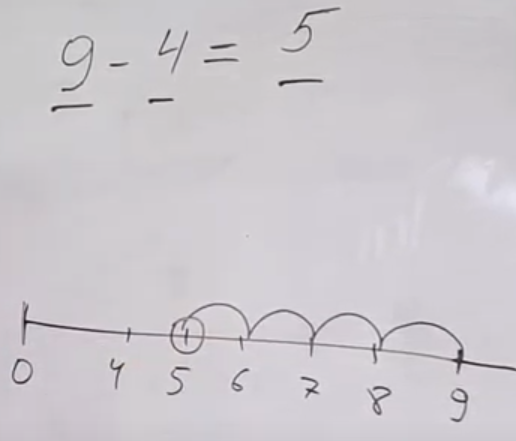 9 - 4 = 5
0 4 5 6 7 8 9